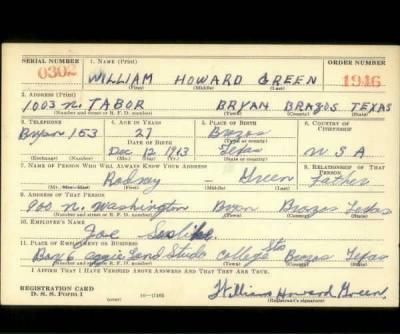 SERIAL NUMBER 1. NAME (Print) ORDER NUMBER
0302 WILLIAM HOWARD GREEN 1946
(First) (Middle) (Last)
2. ADDRESS (Print)
1003 N. TABOR BRYAN BRAZOS TEXAS
(Number and street or R. F. D. number) (Town) (County) (State)
3. TELEPHONE 4. AGE IN YEARS 5. PLACE OF BIRTH 6. COUNTRY OF CITIZENSHIP
Bryan 153 27 Brazos
DATE OF BIRTH (Town or county)
Dec 12 1913 Texas U S A
(Exchange) (Number) (Mo.) (Day) (Yr.) (State or country)
7. NAME OF PERSON WHO WILL ALWAYS KNOW YOUR ADDRESS 8. RELATIONSHIP OF THAT PERSON
Rodney – Green Father
(First) (Middle) (Last)
9. ADDRESS OF THAT PERSON
900 N. Washington Bryan Brazos Texas
(Number and street or R. F. D. number) (Town) (County) (State)
10. EMPLOYER'S NAME
Joe
11. PLACE OF EMPLOYMENT OR BUSINESS
Box 6 Aggieland Studio College Sta Brazos Texas
(Number and street or R. F. D. number) (Town) (County) (State)
I AFFIRM THAT I HAVE VERIFIED ABOVE ANSWERS AND THAT THEY ARE TRUE.
REGISTRATION CARD
D. S. S. Form 1 (over) William Howard Green
(Registrant's signature)